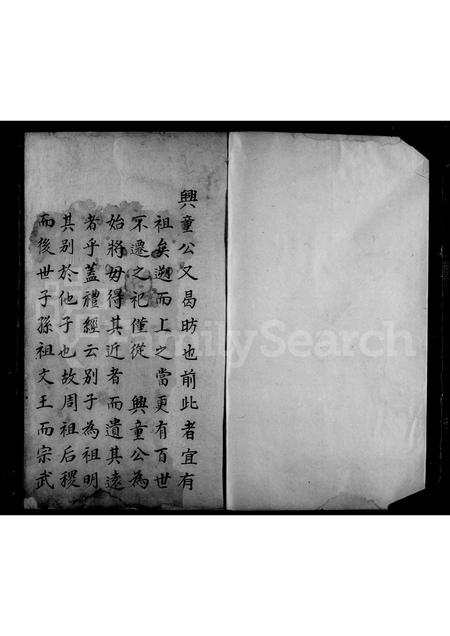 興童公又曷昉也前此者宜有
祖矣遡而上之當更有百世
不遷之祀僅從 興童公為
始將毋得其近者而遺其遠
者乎蓋禮經云別子為祖明
其別於他子也故周祖后稷
而後世子孫祖文王而宗武
FamilySearch